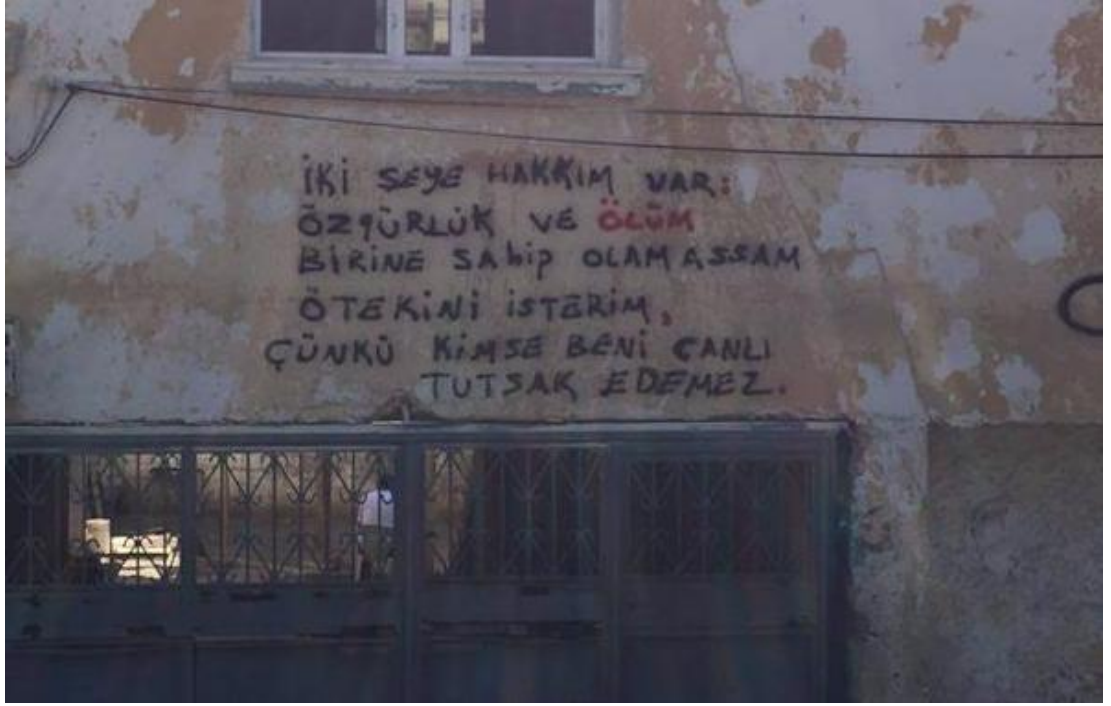 İKİ ŞEYE HAKKIM VAR:
ÖZGÜRLÜK VE ÖLÜM
BİRİNE SAhip OLAMASSAM
ÖTEKİNİ İSTERİM,
ÇÜNKÜ KİMSE BENİ CANLI
TUTSAK EDEMEZ.